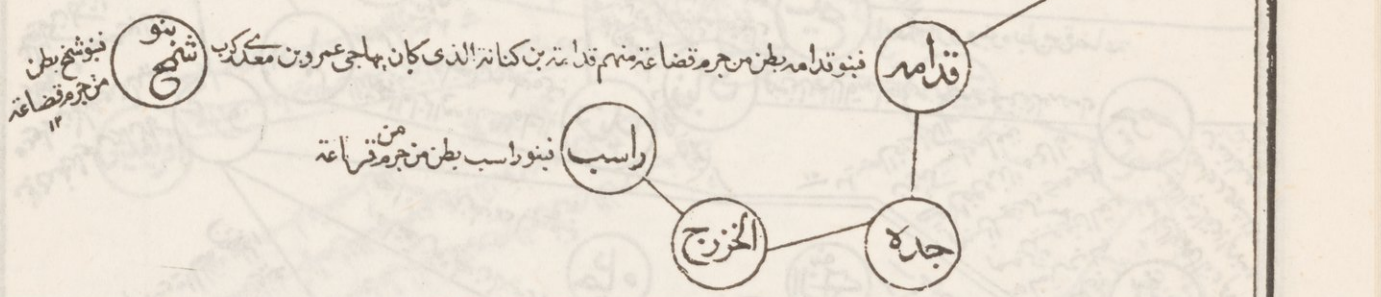 قدامه
فبنو قدامه بطن من جرم قضاعة منهم قدامة بن كنانة الذى كان يهاجى عمرو بن معديكرب
بنو
شمخ
فبنو شمخ بطن
من جرم قضاعة
١٢
راسب
فبنو راسب بطن من جرم قضاعة
جده
الخزرج